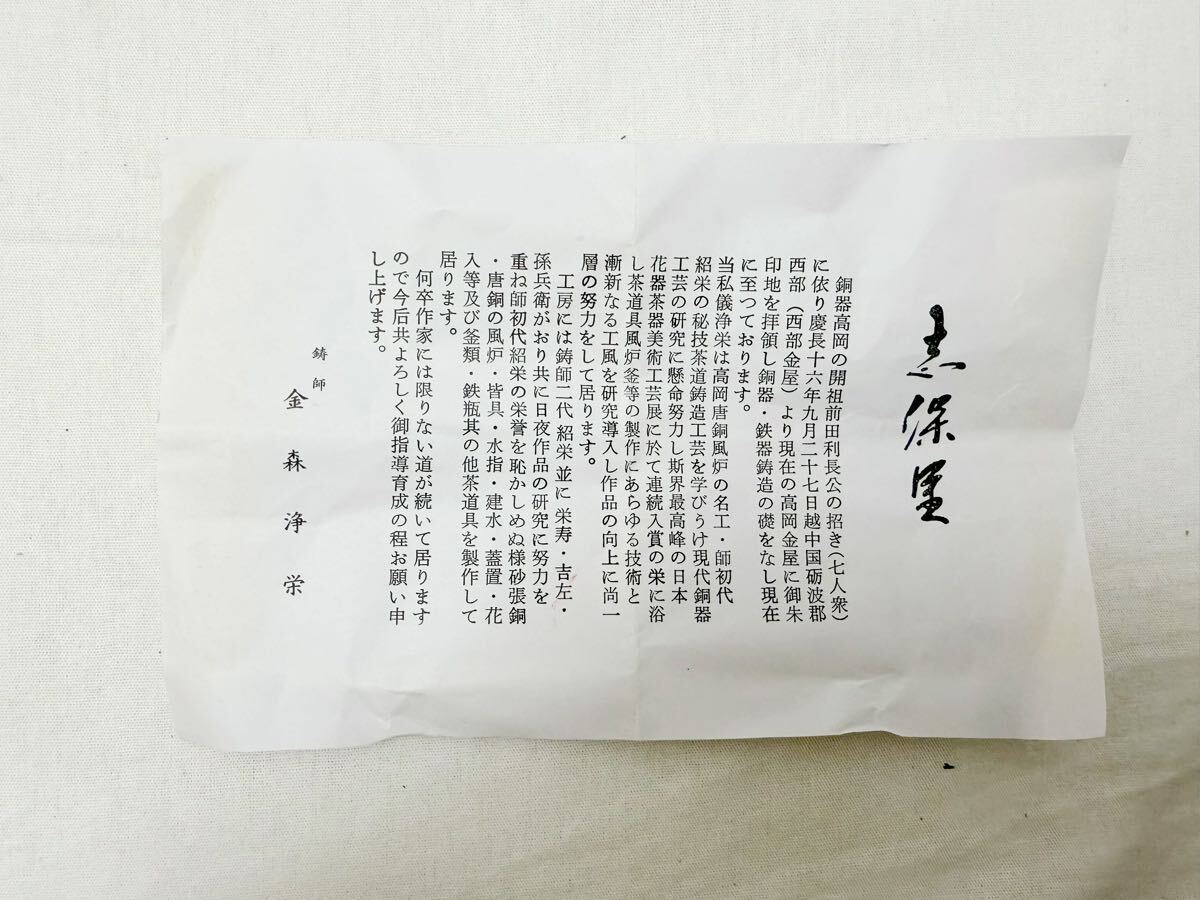 志保里
銅器高岡の開祖前田利長公の招き(七人衆)
に依り慶長十六年九月二十七日越中国砺波郡
西部(西部金屋)より現在の高岡金屋に御朱
印地を拝領し銅器・鉄器鋳造の礎をなし現在
に至つております。
当私儀浄栄は高岡唐銅風炉の名工・師初代
紹栄の秘技茶道鋳造工芸を学びうけ現代銅器
工芸の研究に懸命努力し斯界最高峰の日本
花器茶器美術工芸展に於て連続入賞の栄に浴
し茶道具風炉釜等の製作にあらゆる技術と
漸新なる工風を研究導入し作品の向上に尚一
層の努力をして居ります。
工房には鋳師二代 紹栄並に 栄寿・吉左・
孫兵衛がおり共に日夜作品の研究に努力を
重ね師初代紹栄の栄誉を恥かしめぬ様砂張銅
・唐銅の風炉・皆具・水指・建水・蓋置・花
入等及び釜類・鉄瓶其の他茶道具を製作して
居ります。
何卒作家には限りない道が続いて居ります
ので今后共よろしく御指導育成の程お願い申
し上げます。
鋳師
金森浄栄